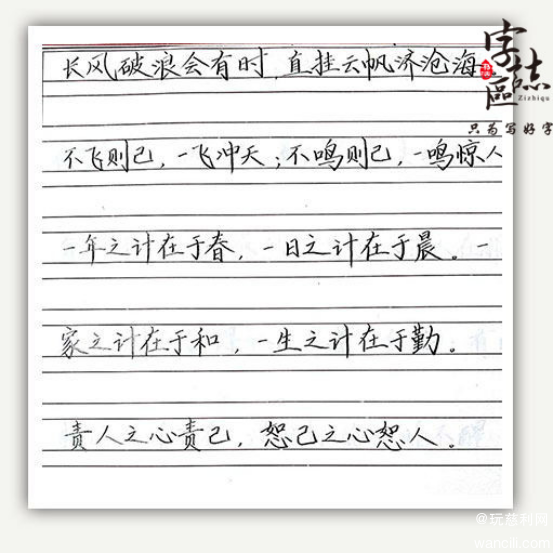 长风破浪会有时,直挂云帆济沧海
不飞则已,一飞冲天;不鸣则已,一鸣惊人
一年之计在于春,一日之计在于晨。一
家之计在于和,一生之计在于勤。
责人之心责己,恕己之心恕人。
字志區
Zizhiqu
只为写好字
@玩慈利网
wancili.com